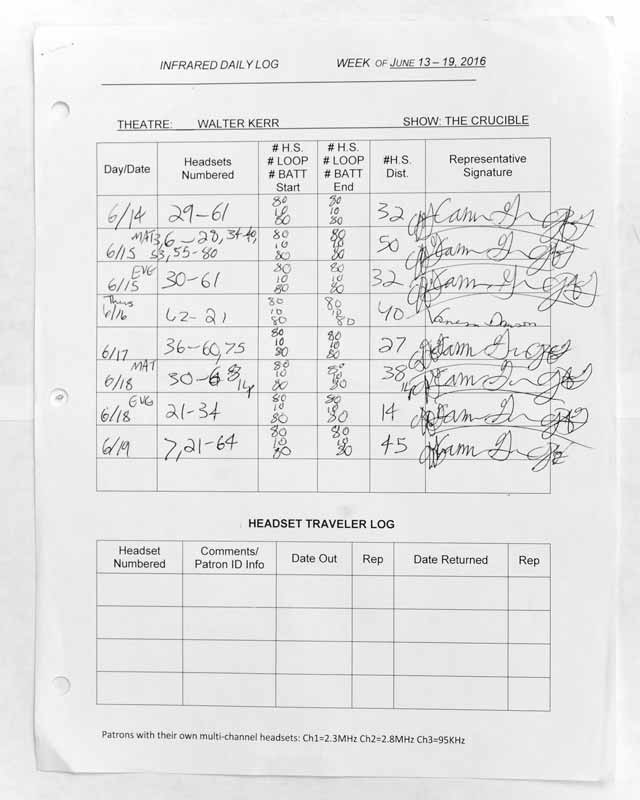 INFRARED DAILY LOG WEEK OF JUNE 13 – 19, 2016
THEATRE: WALTER KERR SHOW: THE CRUCIBLE
Day/Date Headsets Numbered # H.S. # LOOP # BATT Start # H.S. # LOOP # BATT End #H.S. Dist. Representative Signature
6/14 29-61 80 10 80 80 10 80 32
6/15 MAT 3,6-28, 34-40, 53,55-80 80 10 80 80 10 80 50
6/15 EVG 30-61 80 10 80 80 10 80 32
Thurs 6/16 62-21 80 10 80 80 10 80 40
6/17 36-60,75 80 10 80 80 10 80 27
6/18 MAT 30-68 14 80 10 80 80 10 80 38
6/18 EVG 21-34 80 10 80 80 10 80 14
6/19 7,21-64 80 10 80 80 10 80 45
HEADSET TRAVELER LOG
Headset Numbered Comments/ Patron ID Info Date Out Rep Date Returned Rep
Patrons with their own multi-channel headsets: Ch1=2.3MHz Ch2=2.8MHz Ch3=95KHz